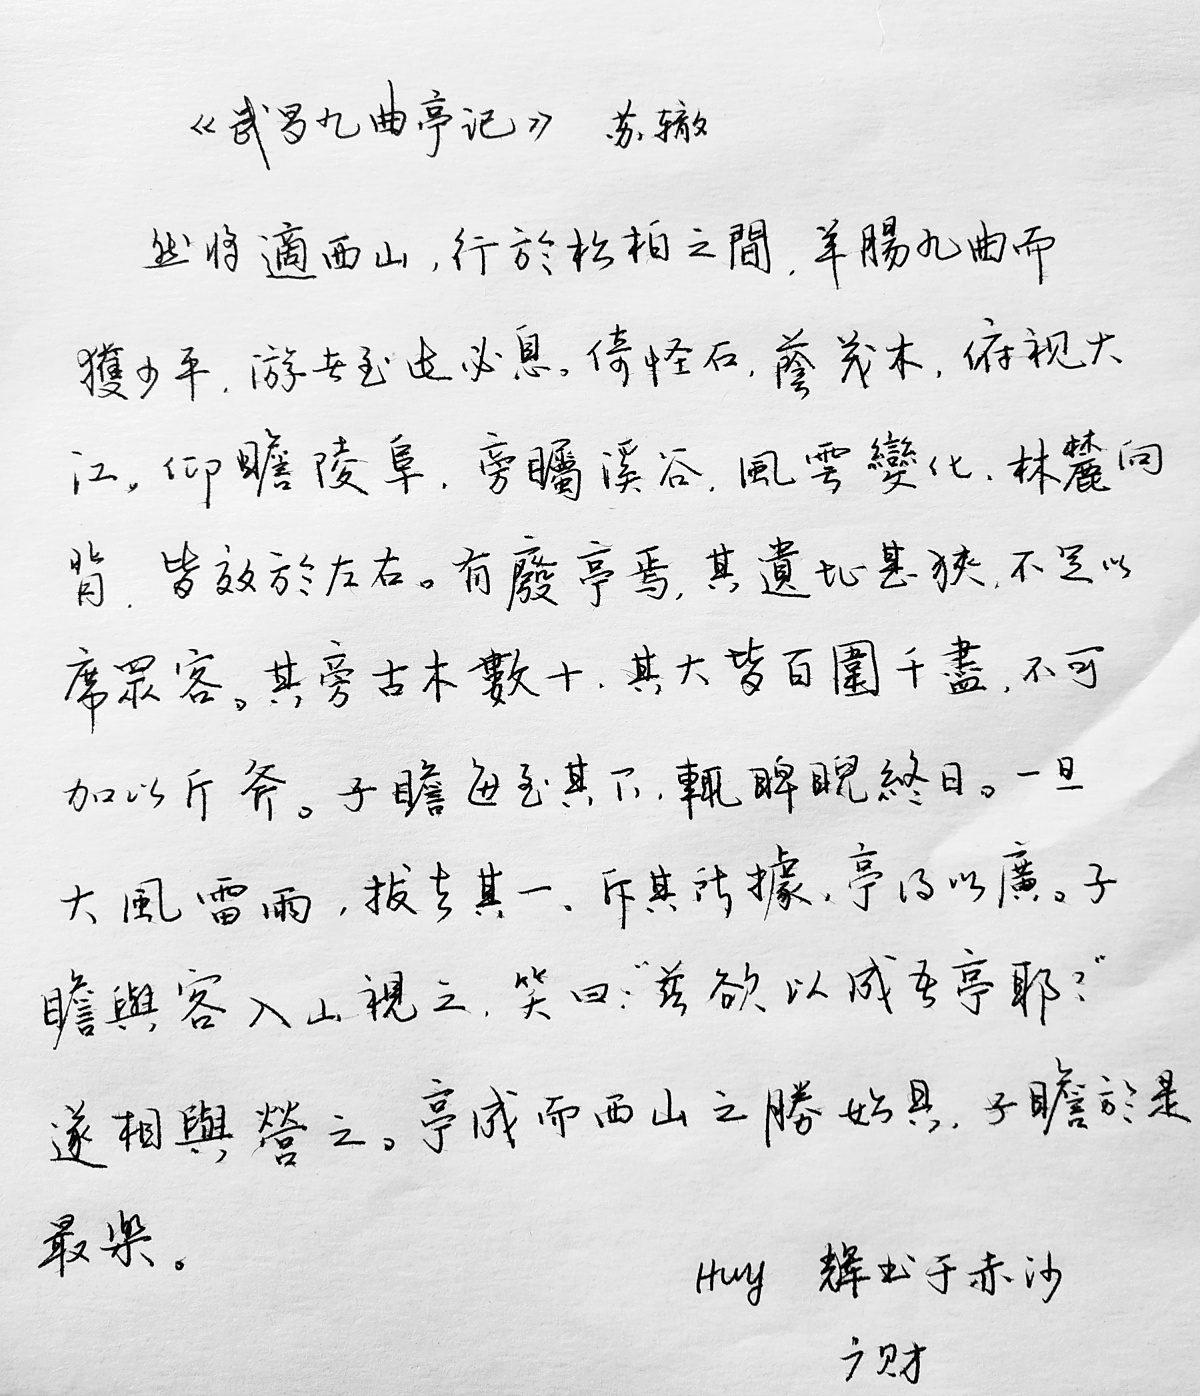 《武昌九曲亭记》 苏辙
然将適西山，行於松柏之間，羊腸九曲而
獲少平，游者至此必息。倚怪石，蔭茂木，俯视大
江，仰瞻陵阜，旁矚溪谷，風雲變化，林麓向
背，皆效於左右。有廢亭焉，其遺址甚狹，不足以
席眾客。其旁古木數十，其大皆百圍千盡，不可
加以斤斧。子瞻每至其下，輒睥睨終日。一旦
大風雷雨，拔去其一，斥其所據，亭得以廣。子
瞻與客入山視之，笑曰：“兹欲以成吾亭耶？”
遂相與營之。亭成而西山之勝始具，子瞻於是
最樂。
Huy 輝书于赤沙
广财